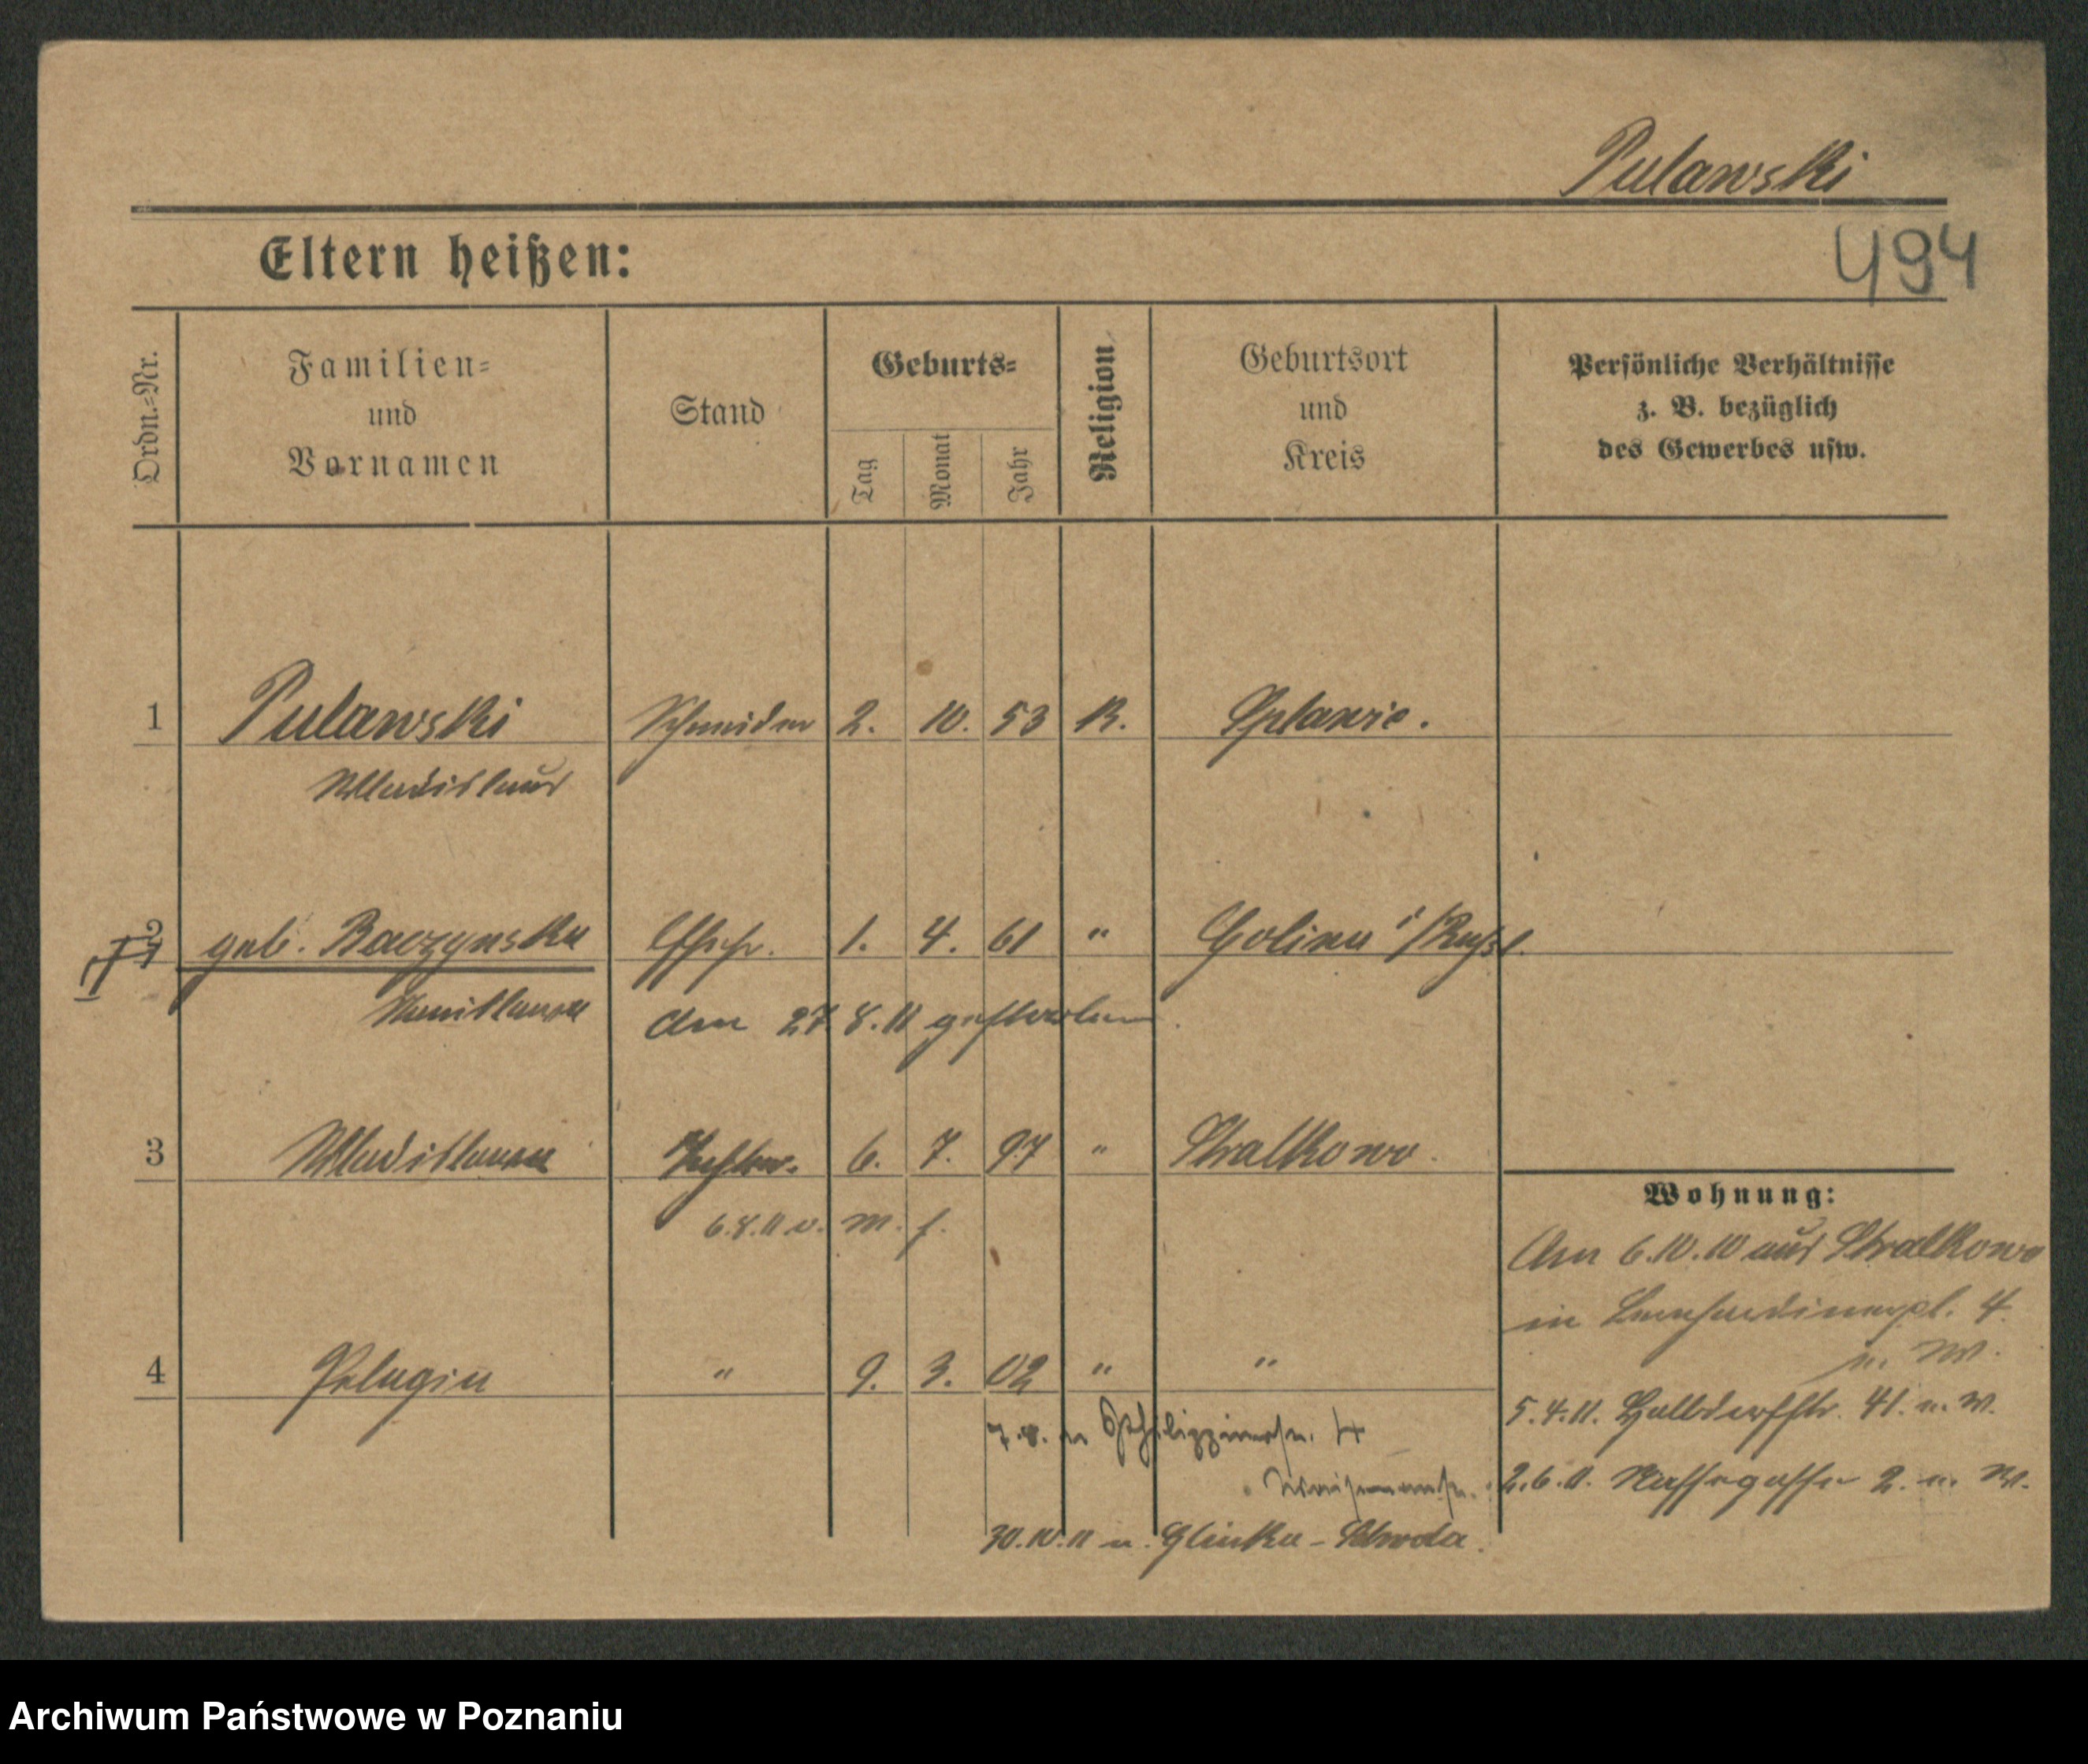 Pulawski
Eltern heißen:
494
Ordn.-Nr.
Familien-
und
Vornamen
Stand
Geburts-
Tag
Monat
Jahr
Religion
Geburtsort
und
Kreis
Persönliche Verhältnisse
z. B. bezüglich
des Gewerbes usw.
1 Pulawski Schneider 2. 10. 53 K. Splawie.
Wladislaus
2 geb. Baczynska Ehefr. 1. 4. 61 " Golina i/Rußl.
Am 27.8.11 gestorben.
3 Wladislawa 6. 7. 97 " Stralkowo.
6.8.11 v. m. f.
Wohnung:
Am 6.10.10 aus Stralkowo
in Bernhardinerpl. 4.
n. W.
4 Pelagia " 9. 3. 02 " "
5.4.11. Halbdorfstr. 41. n. W.
7.8. 4
2.6.11. Nassegasse 2. n. W.
30.10.11 n. Glinka - Schroda.
Archiwum Państwowe w Poznaniu